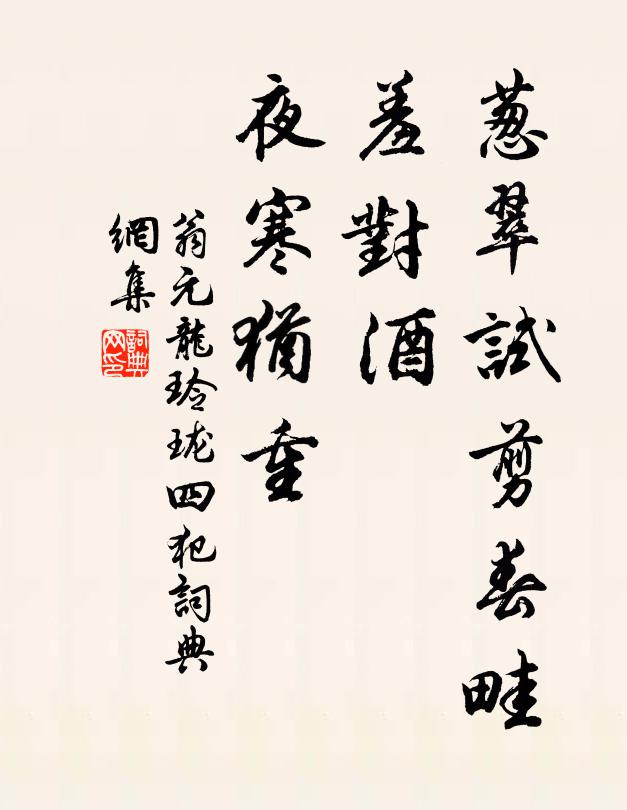 蔥翠試剪春畦
羞對酒
夜寒猶重
翁元龍玲瓏四犯詞典
網集
詞典網印